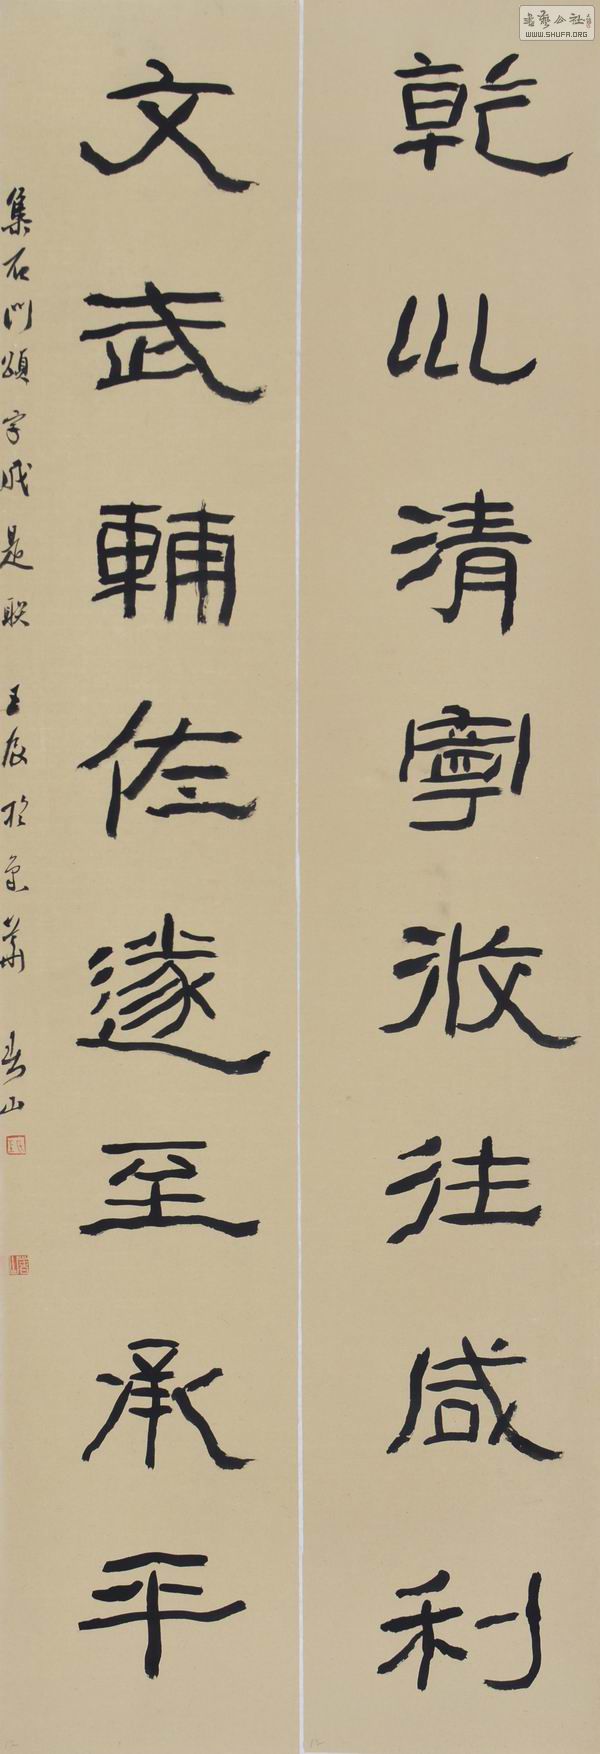 乾巛清寧攸往咸利
文武輔佐遂至承平
集石門頌字成是联 壬辰於京 山
书艺公社
WWW.SHUFA.ORG